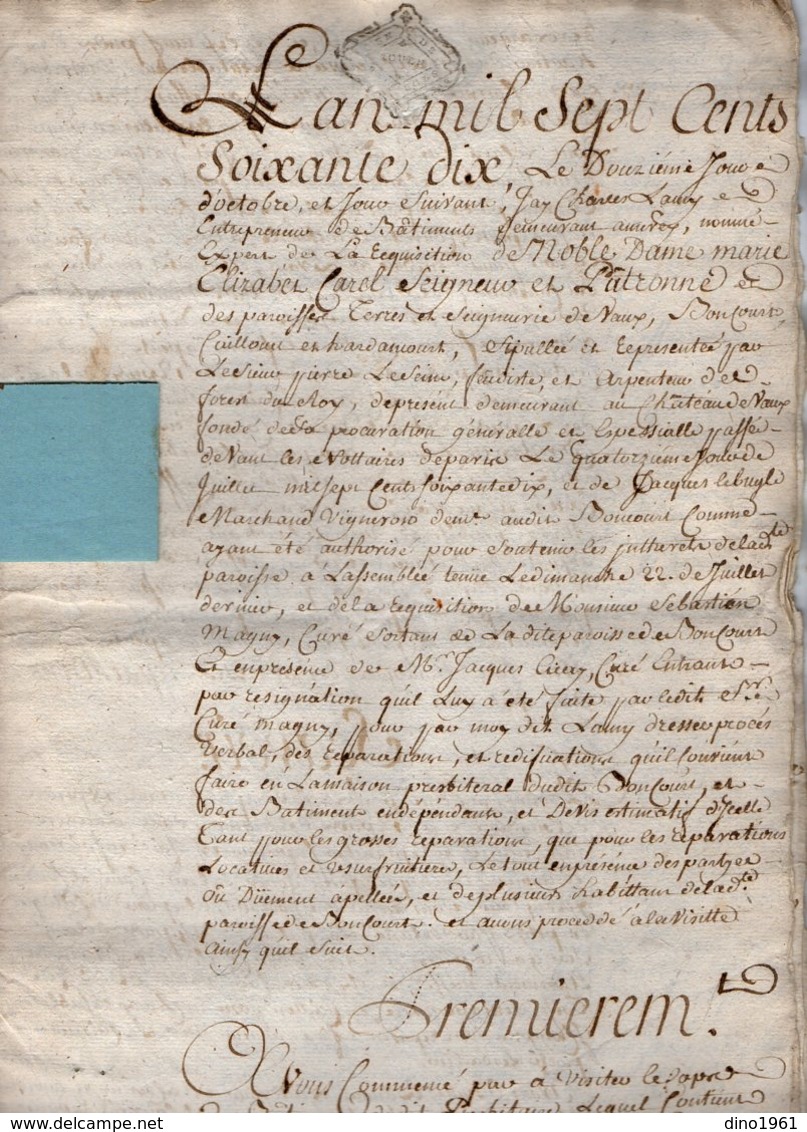 L'an mil Sept Cents
Soixante dix, Le Douzième Jour
d'octobre, et Jour Suivant, Jay Charles Lamy
Entrepreneur de Bâtiments demeurant nommé
Expert de La Requisition de Noble Dame marie
Elizabet Carel Seigneur et Patronne
des paroisses Terres et Seigneurie de Vaux, Boncourt
et hardancourt, et Representée par
Le Sieur pierre Le et Arpenteur
forest du Roy, depresent demeurant au Château de Vaux
fondé de procuration généralle et Espessialle passée
devant les Nottaires deparis Le quatorzieme Jour de
Juillet mil sept Cents soixante dix, et de Jacques
Marchand Vigneron dem.t audit Boncourt Comme
ayant été authorisé pour soutenir les jnttrets delad.te
paroisse, à Lassemblée tenue Le dimanche 22. de Juillet
dernier, et de La Requisition de Monsieur Sebastien
Magny, Curé sortant de La dite paroisse de Boncourt
Et en presence de M.r Jacques Curé Entrant
par resignation quil Luy à été faite par ledit S.r
Curé magny, pour par moy dit Lamy dresser procés
verbal, des reparations, et redifications quil Convient
faire en Lamaison presbiteral dudit Boncourt, et
des Batiment endépendants, et Devis estimatif d'Icelle
Tant pour les grosses reparations, que pour les réparations
Locatives et usufruitiere, Le tout en présence des partyes
où Düement àpellée, et de plusieurs habittant delad.te
paroisse de Boncourt. et avons procedé à la Visitte
ainsy quil suit.
Premierem.t
Avons Commencé par à Visiter le
Presbitere Lequel Contient
dino1961